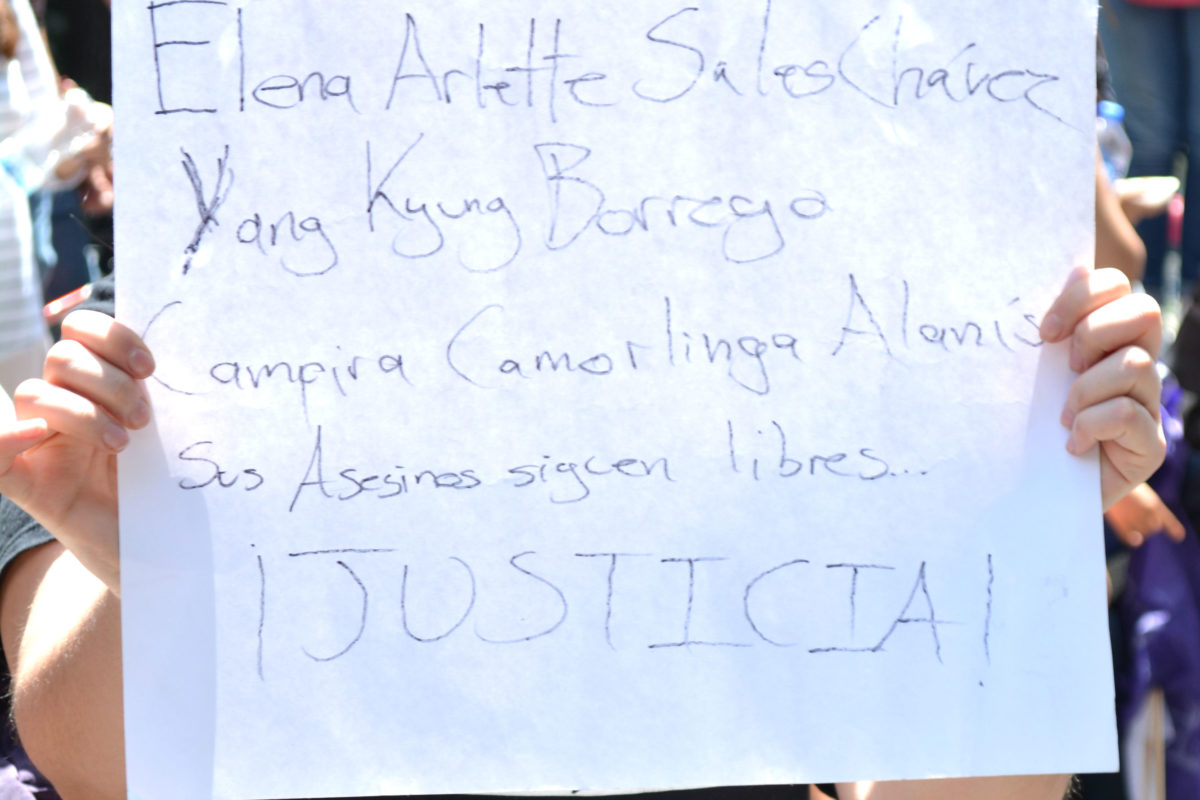 Elena Arlette Sales Chávez
Yang Kyung Borrego
Campira Camorlinga Alanís
Sus Asesinos siguen libres...
¡JUSTICIA!